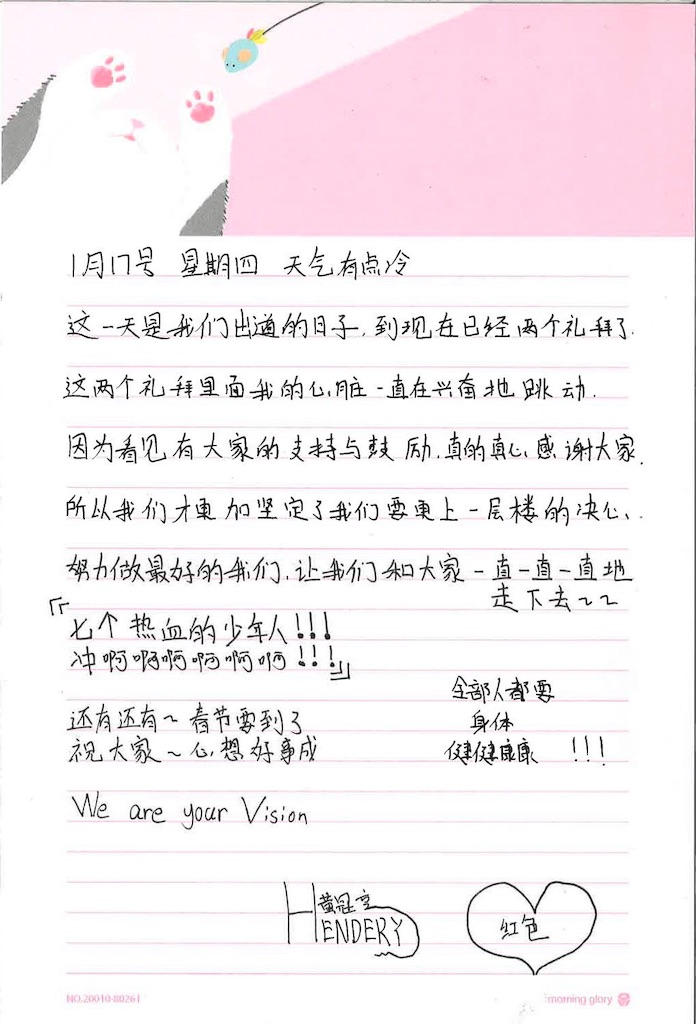 1月17号 星期四 天气有点冷
这一天是我们出道的日子,到现在已经两个礼拜了.
这两个礼拜里面我的心脏一直在兴奋地跳动.
因为看见有大家的支持与鼓励,真的真心感谢大家.
所以我们才更加坚定了我们要更上一层楼的决心、
努力做最好的我们,让我们和大家一直一直一直地
走下去~~
『七个热血的少年人!!!
冲啊啊啊啊啊啊!!!』
还有还有~春节要到了
祝大家~心想好事成
全部人都要
身体
健健康康 !!!
We are your Vision
黄冠亨
HENDERY
红色
NO.20010-80261
morning glory